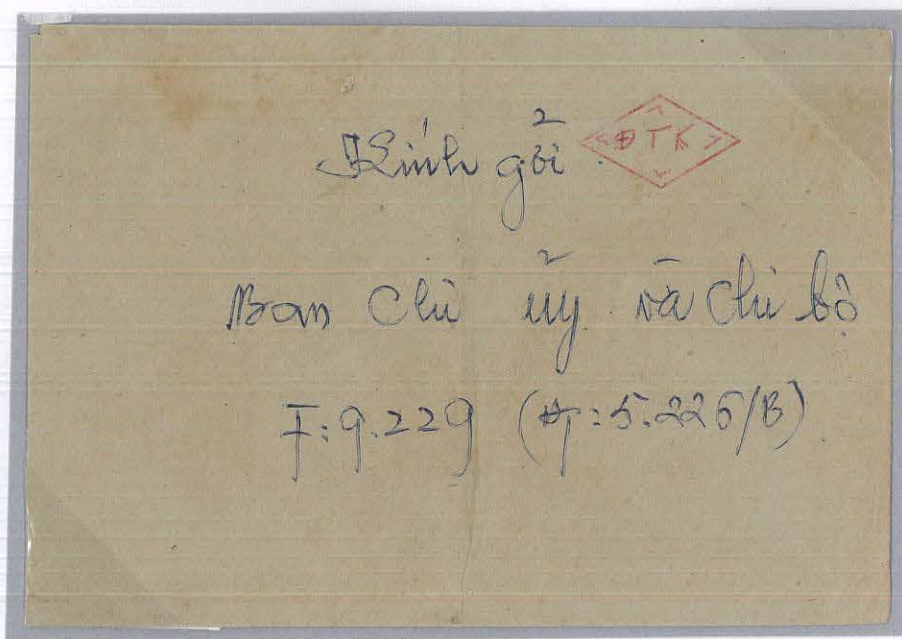 Kính gởi
<ĐTK>
Ban Chi ủy và Chi bộ
F: 9.229 (HT: 5.226/B)